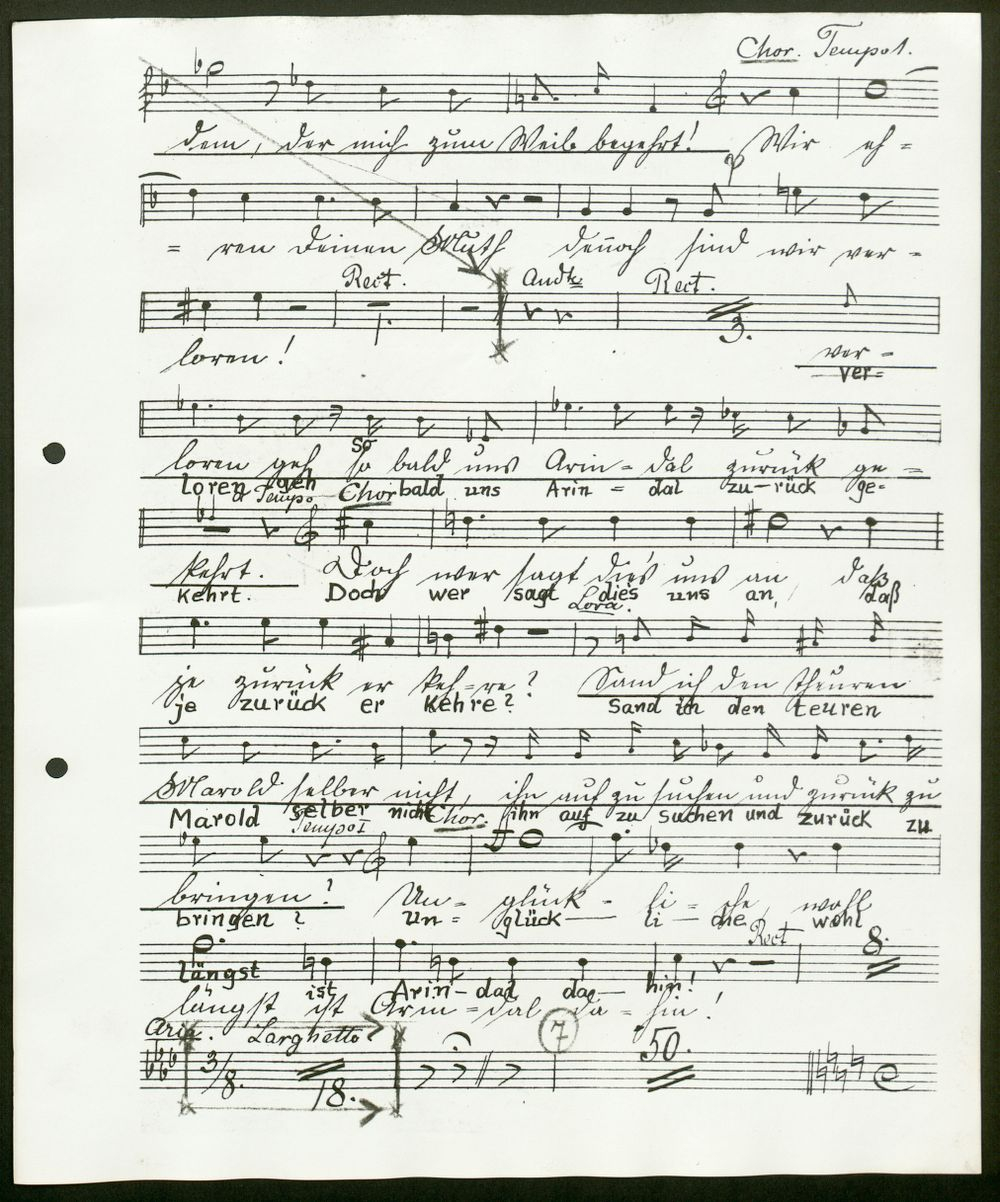 Chor. Tempo 1.
dem, der mich zum Weib begehrt! Wir eh =
= ren Deinen Muth deñoch sind wir ver -
Rect. Andte Rect.
1. 3.
loren! ver -
ver=
So
loren geh so bald uns Arin - dal zurück ge =
loren geh bald uns Arin = dal zu - rück ge=
a Tempo Chor
kehrt. Doch wer sagt dies uns an daß
kehrt. Doch wer sagt dies uns an, daß
Lora.
je zurück er keh-re? Sand ich den theuren
je zurück er kehre? Sand ich den teuren
Marold selber nicht, ihn auf zu suchen und zurück zu
Marold selber nicht ihn auf zu suchen und zurück zu
Tempo I Chor.
bringen? Un- glück - li = che, wohl
bringen? un = glück - li - che wohl
Rect 8.
längst ist Arin - dal da - hin!
längst ist Arin = dal da - hin!
Aria. Larghetto 7
3/8. 18. 50.